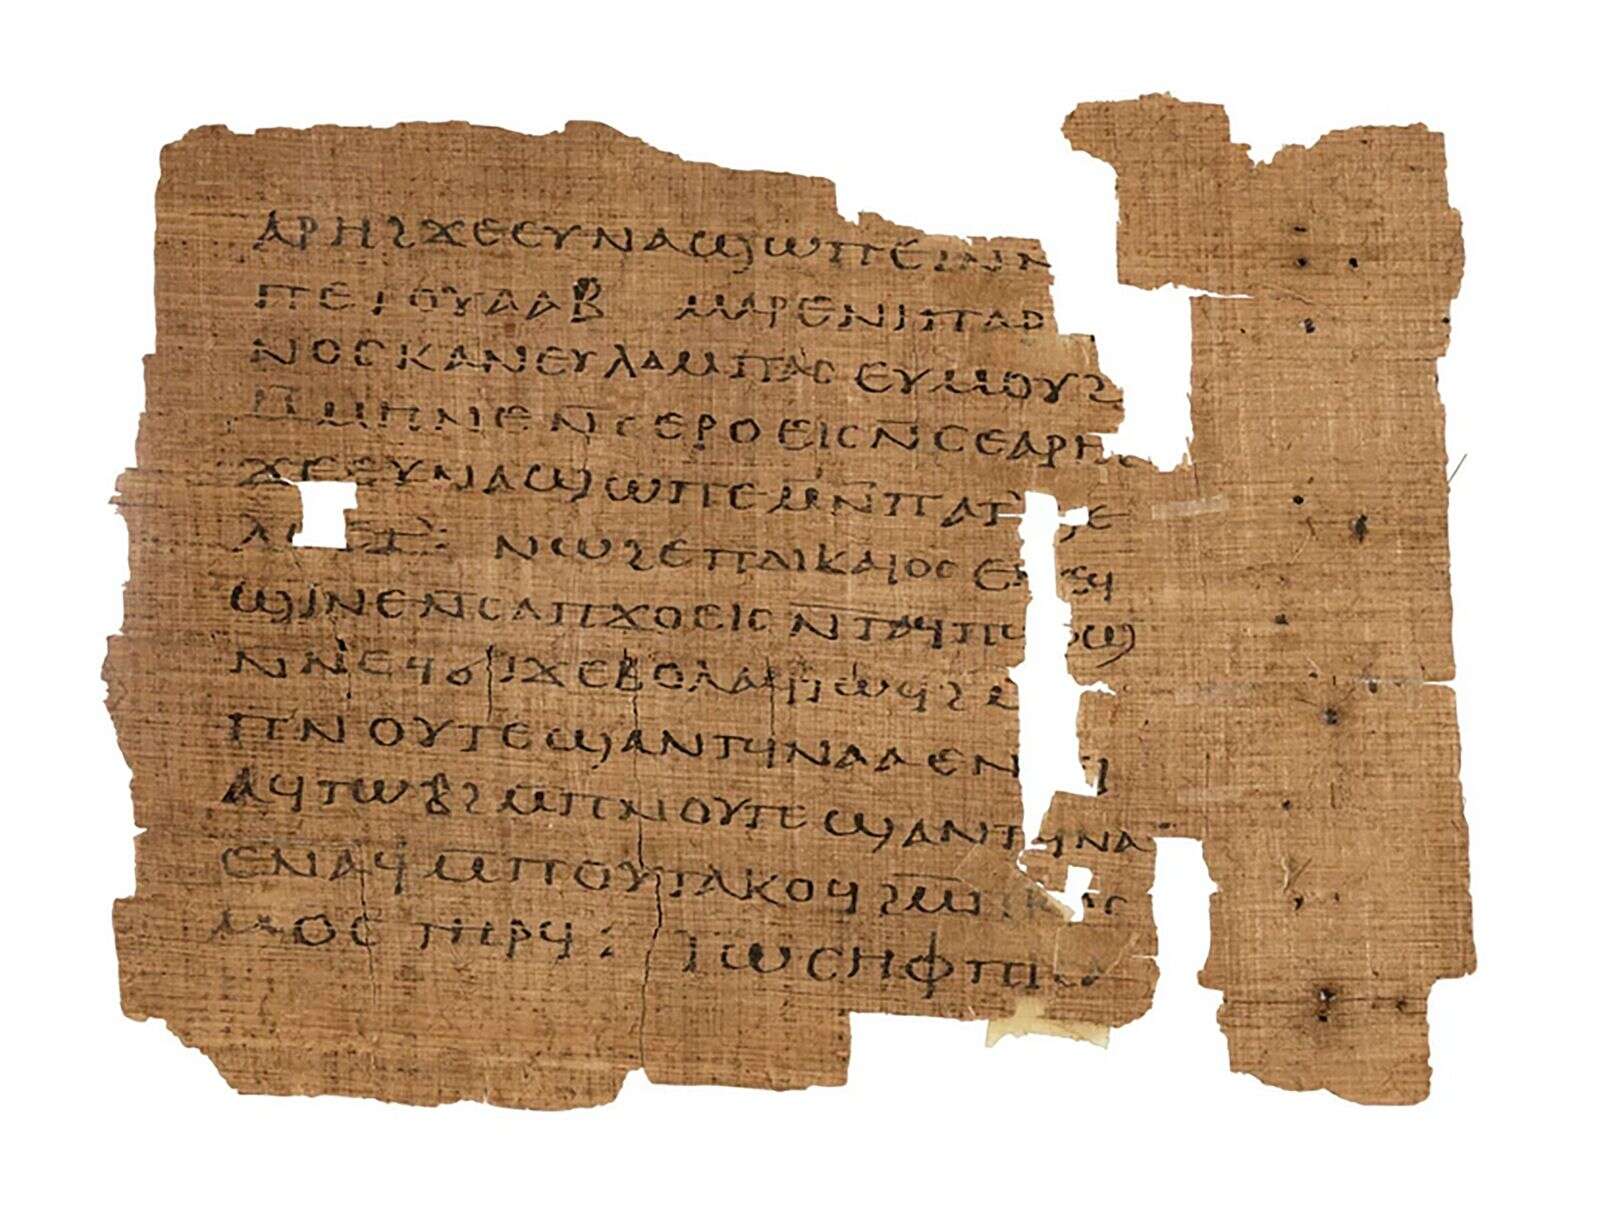 ⲁⲣⲏϩϫⲉⲉⲩⲛⲁϣⲱⲡⲉ
ⲡⲉⲧⲟⲩⲁⲁⲃ ⲙⲁⲣⲉⲛⲓⲡⲁⲣ
ⲛⲟⲥⲕⲁⲛⲉⲩⲗⲁⲙⲡⲁⲥ ⲉⲩⲙⲟⲩϩ
ⲙⲙⲏⲛⲉⲛ̅ⲥⲉⲣⲟⲉⲓⲥⲛ̅ⲥⲉⲁⲣⲏϩ
ϫⲉⲉⲩⲛⲁϣⲱⲡⲉⲙⲛ̅ⲡⲁⲅ ⲅⲉ
ⲛⲱϩⲉⲡⲇⲓⲕⲁⲓⲟⲥ
ϣⲓⲛⲉⲛ̅ⲥⲁⲡϫⲟⲉⲓⲥ ⲛ̅ⲧⲁϥⲡⲱ ϣ
ⲛ̅ⲛⲉϥϭⲓϫⲉⲃⲟⲗⲁϥⲡⲱϥϩⲁ
ⲡⲛⲟⲩⲧⲉϣⲁⲛⲧϥⲛⲁⲁⲉⲛ ϥ
ⲁϥⲧⲱⲃϩⲙ̅ⲡⲛⲟⲩⲧⲉϣⲁⲛⲧϥⲛⲁ
ⲉⲛⲁϥ ⲙ̅ⲡⲟⲩⲧⲁⲕⲟϥϩⲙ̅ⲡⲕⲟⲥ
ⲙⲟⲥ ⲧⲏⲣϥ: ⲓⲱⲥⲏⲫⲡⲓ